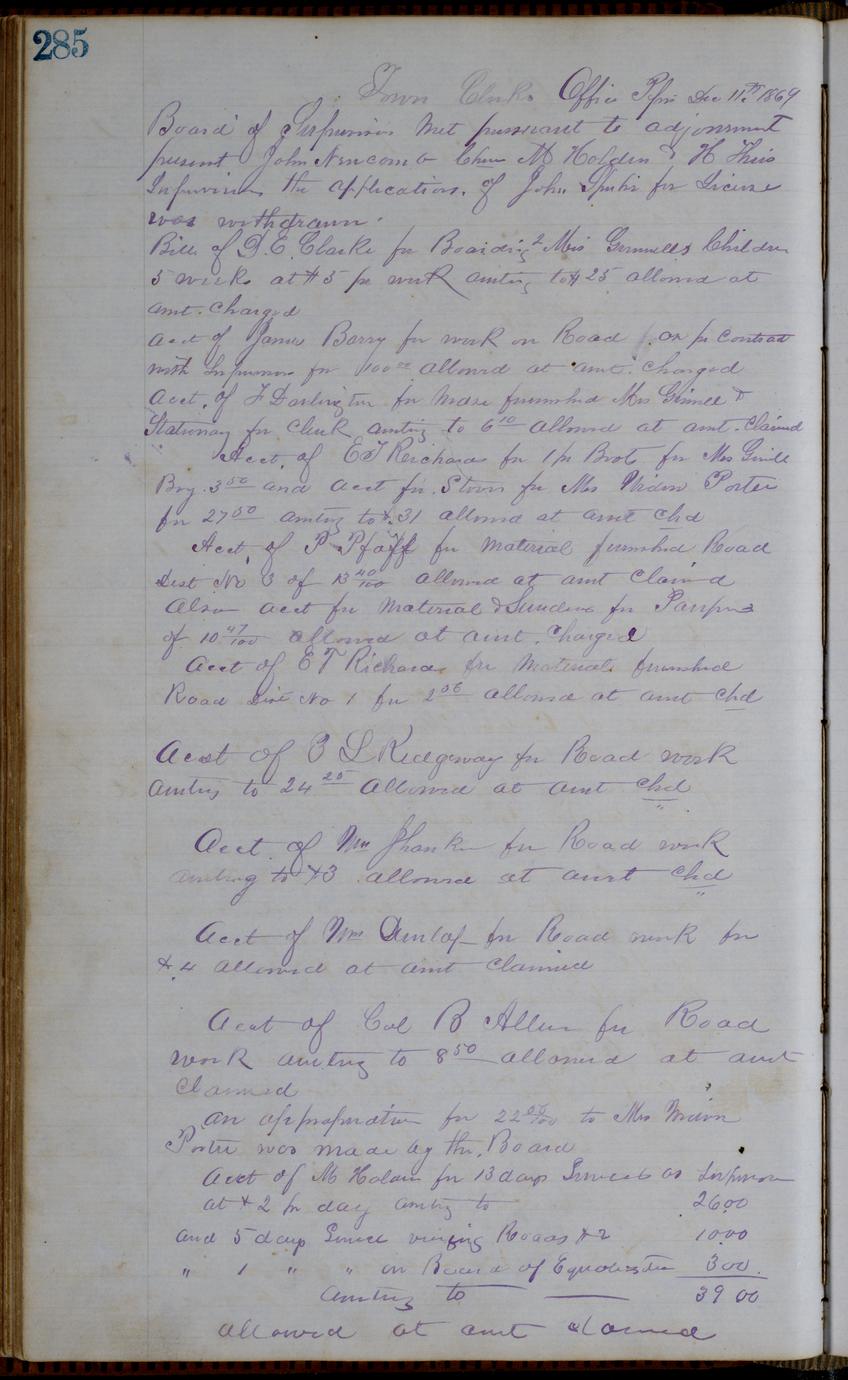 285
Town Clerks Office Dec 11th 1869
Board of Supervisors Met pursuant to adjornment
present John Newcomb Chm M Holden & H
Supervisors the application of John for License
was withdrawn.
Bill of D. E. Clarke for Boarding 2 Mrs Children
5 weeks at $5 pr week amting to $25 allowed at
amt. charged
acct of James Barry for work on Road as pr Contract
with Supervisors for 100 00 allowed at amt. charged
Acct. of F Darlington for Mdse furnished Mrs &
Stationary for Clerk amting to 6 10 allowed at amt. claimed
Acct. of E T Richards for 1 pr Boots for Mrs
Boy 3 50 and acct for Stove for Mrs Widow Porter
for 27 50 amting to $31 allowed at amt chd
Acct. of P Pfaff for Material furnished Road
Dist No 3 of 13 40/100 allowed at amt claimed
Also acct for Material & Sundries for Paupers
of 10 47/100 allowed at amt. charged
Acct of E T Richards for Material furnished
Road Dist No 1 for 2 allowed at amt chd
Acct of L Ridgeway for Road work
amting to 24 25 allowed at amt chd
Acct. of Wm for Road work
amting to $3 allowed at amt chd
Acct of Wm Dunlap for Road work for
$4 allowed at amt claimed
Acct of Col B Allen for Road
work amting to 8 50 allowed at amt
claimed
an appropriation for 22 to Mrs Widow
Porter was made by the Board
Acct of M Holden for 13 days Services as Supervisor
at $2 pr day amting to 26.00
and 5 days Service viewing Roads $2 10.00
" 1 " " on Board of Equalization 3 00.
Amting to 39 00
allowed at amt claimed